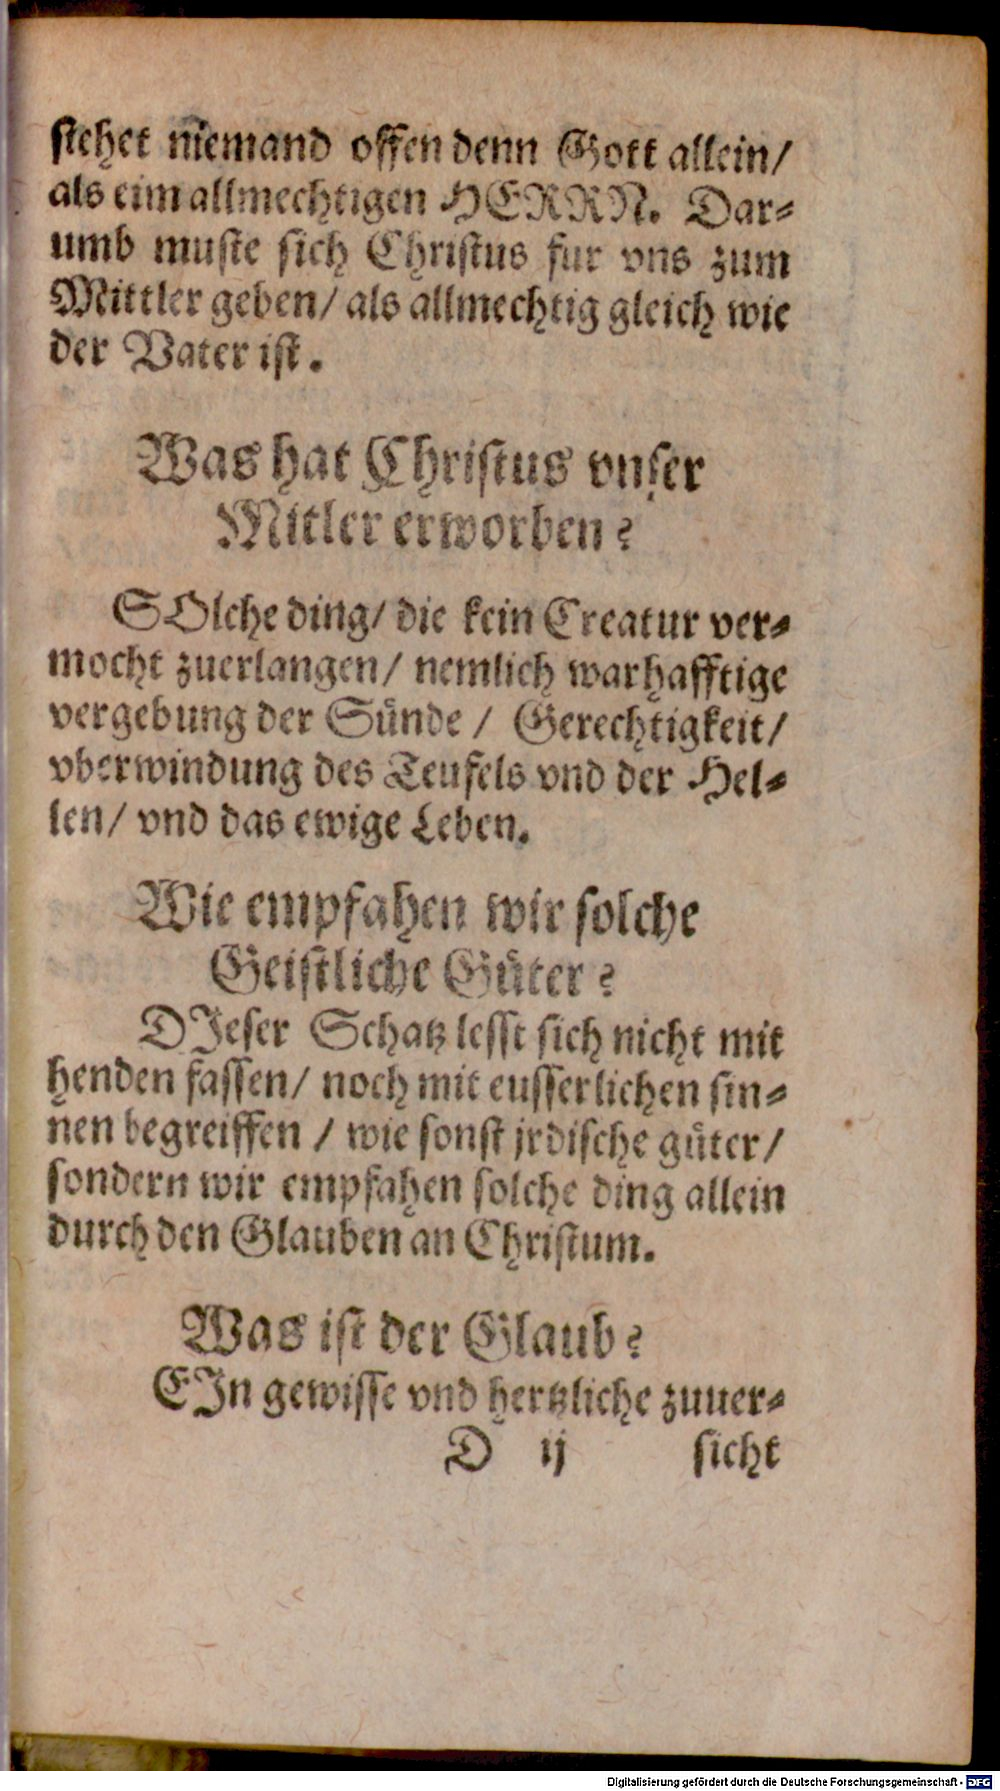 stehet niemand offen denn Gott allein/
als eim allmechtigen HERRN. Dar⸗
umb muste sich Christus fur vns zum
Mittler geben/ als allmechtig gleich wie
der Vater ist.
Was hat Christus vnser
Mitler erworben?
SOlche ding/ die kein Creatur ver⸗
mocht zuerlangen/ nemlich warhafftige
vergebung der Sünde / Gerechtigkeit/
vberwindung des Teufels vnd der Hel⸗
len/ vnd das ewige Leben.
Wie empfahen wir solche
Geistliche Güter?
DJeser Schatz lesst sich nicht mit
henden fassen/ noch mit eusserlichen sin⸗
nen begreiffen / wie sonst jrdische güter/
sondern wir empfahen solche ding allein
durch den Glauben an Christum.
Was ist der Glaub?
EJn gewisse vnd hertzliche zuuer⸗
D ij sicht
Digitalisierung gefördert durch die Deutsche Forschungsgemeinschaft - DFG